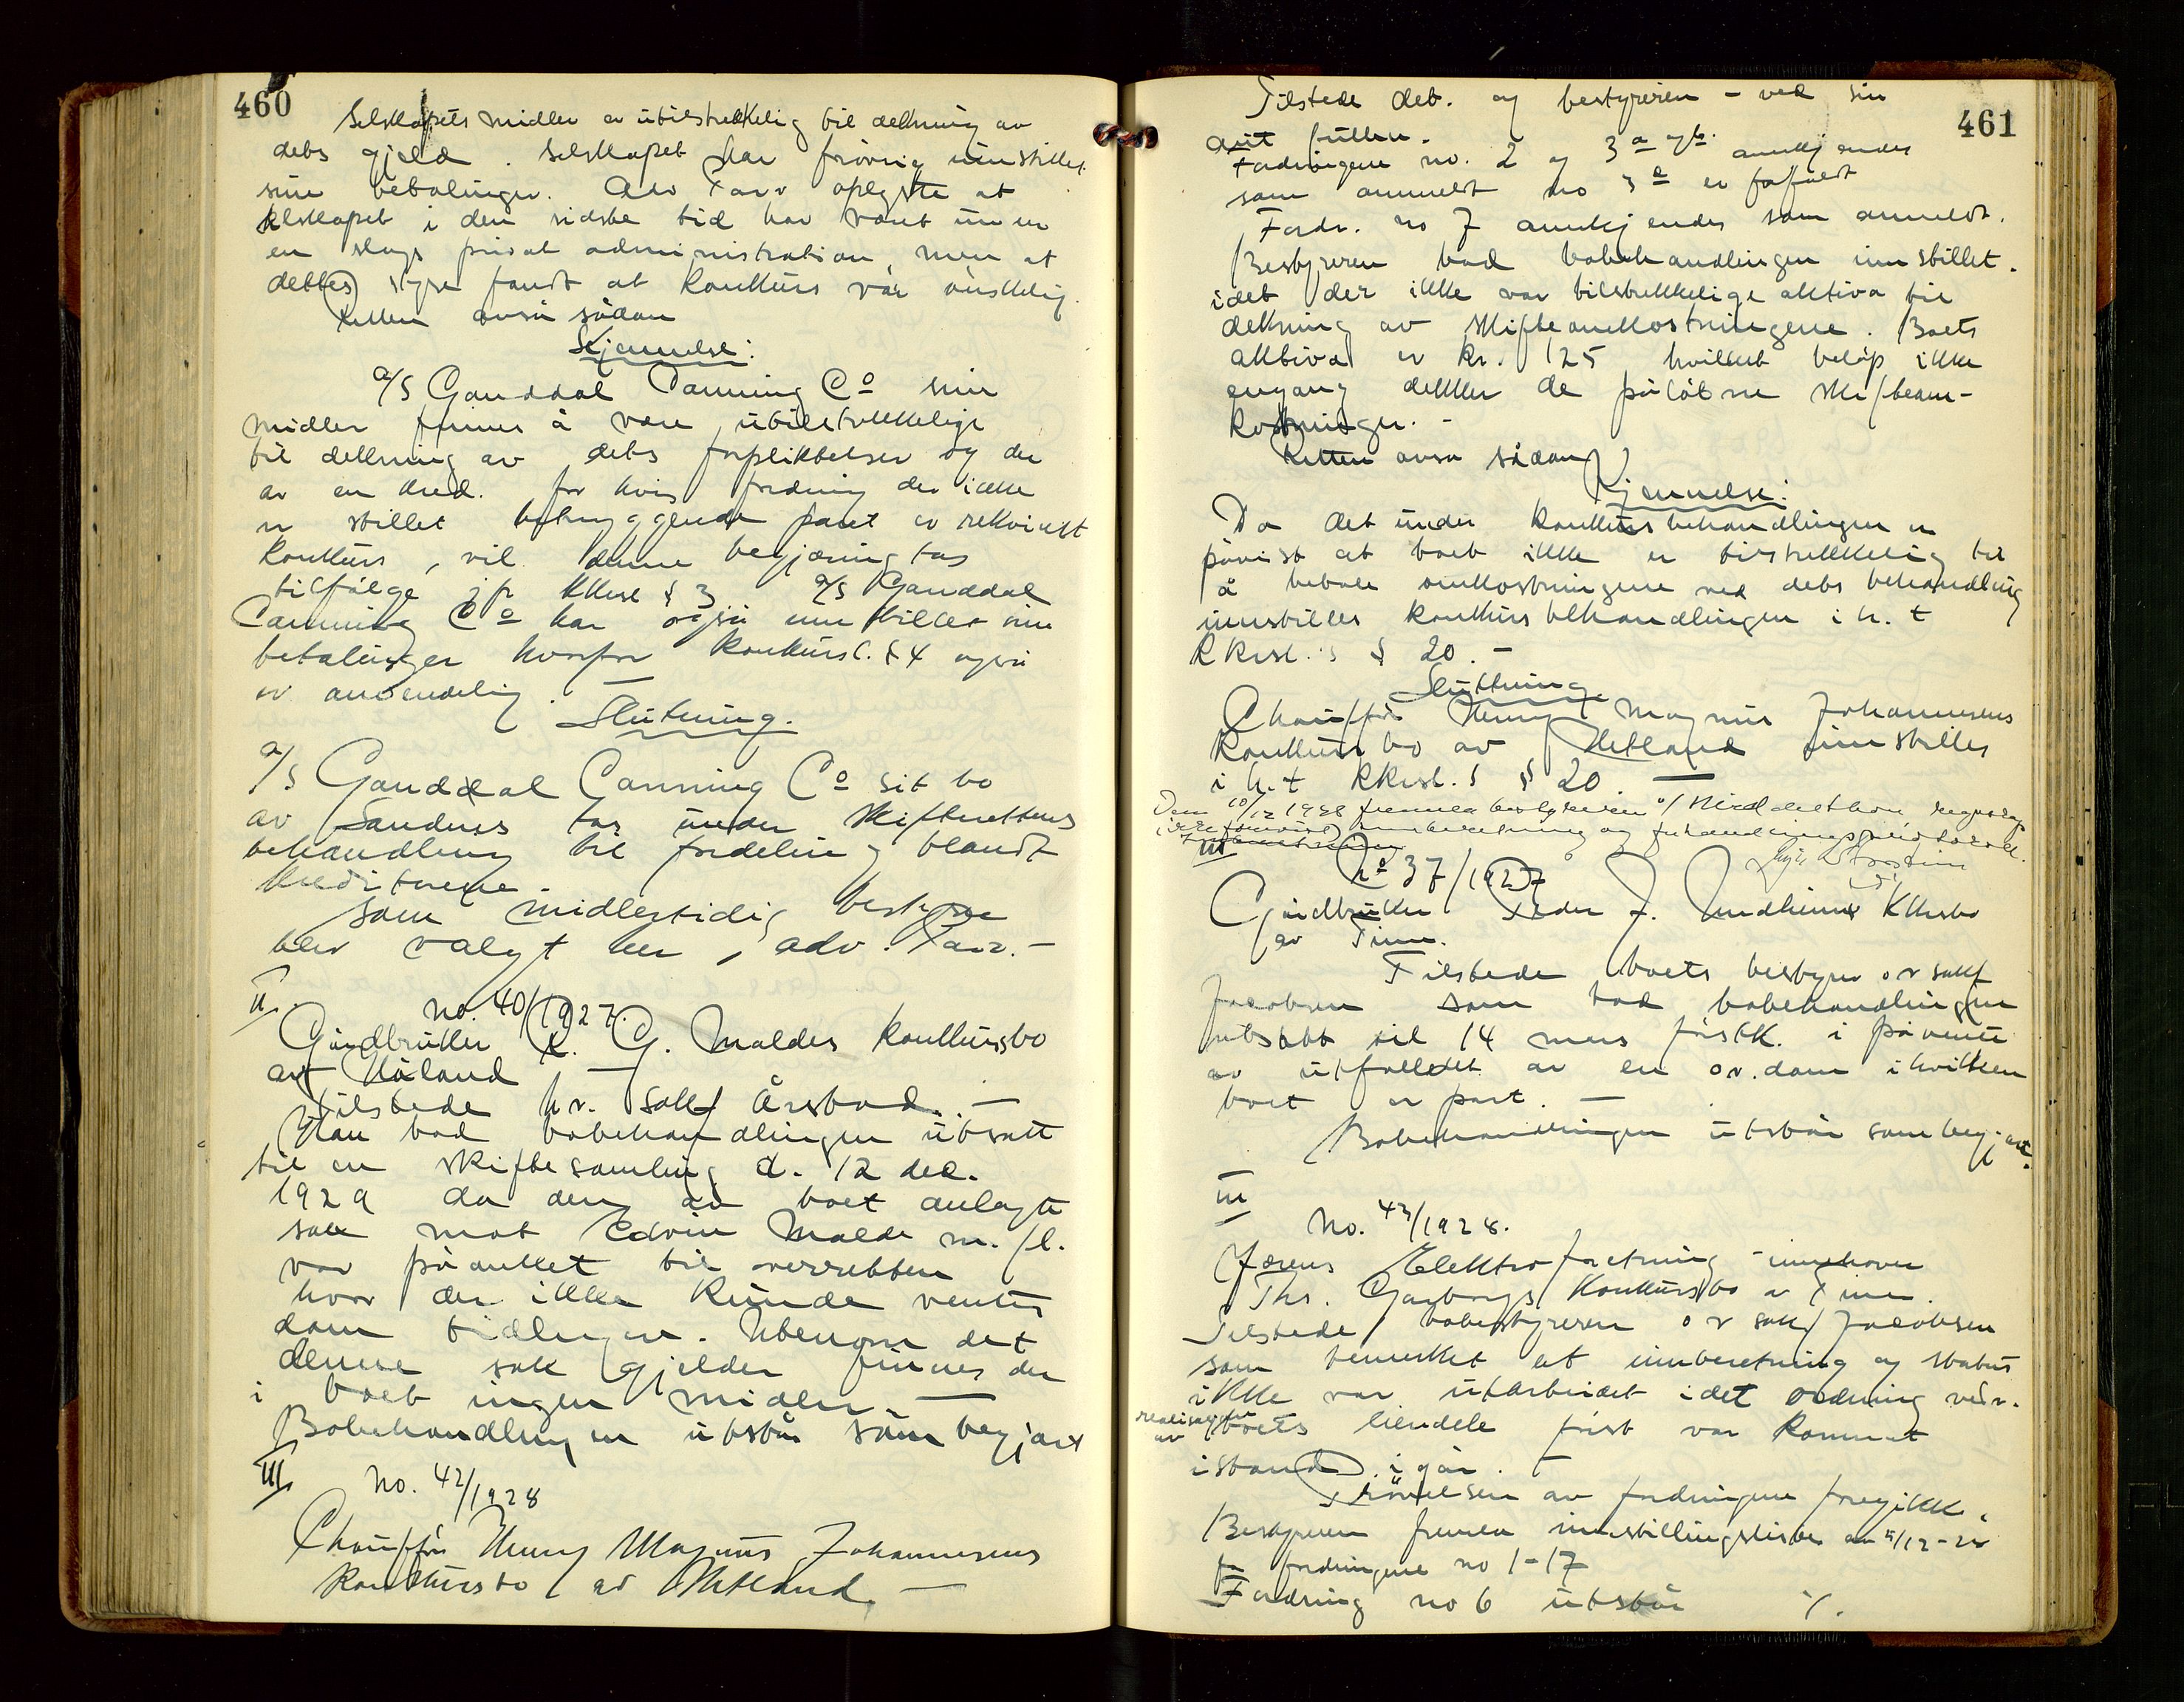 460
Selskapets midler er utilstrekkelig til dekning av
dets gjeld. Selskapet har frøvrig innstillet
sine betalinger. Adv Tarr oplyste at
selskapet i den sidste tid har vært under
en slags privat administration, men at
dettes styre fandt at konkurs var ønskelig.
Retten avsa sådan
Kjennelse:
A/S Ganddal Canning Co sine
midler finnes å være utilstrekkelige
til dekning av dets forpliktelser og da
av en kred. for hvis fordring der ikke
er stillet betryggende pant er rekvirert
konkurs, vil denne begjæring tas
tilfølge jfr Kkrsl § 3 A/S Ganddal
Canning Co har også innstillet sine
betalinger hvorfor konkursl. § 4 også
er anvendelig. —
Slutning.
A/S Ganddal Canning Co sit bo
av Sandnes tas under skifterettens
behandling til fordeling blandt
kreditorene.
Som midlertidig bestyrer
blev valgt herr, adv. Tarr. -
II.
no. 40/1927.
Gårdbruker R. G. Maldes konkursbo
av Håland —
Tilstede hr. sakf Årsbod. —
Han bad bobehandlingen utsatt
til en skiftesamling d. 12 dec.
1929 da den av boet anlagte
sak mot Edvin Malde m. fl.
var påanket til overretten
hvor der ikke kunde ventes
dom tidligere. Utenom det
denne sak gjelder finnes der
i boet ingen midler. —
Bobehandlingen utstår som begjært
III.
No. 42/1928
Chauffør Henry Magnus Johannesens
konkursbo av Hetland. —
461
Tilstede deb. og bestyreren - ved sin
Fordringene no. 2 og 3a og b. anerkjendes
som anmeldt no 3a er forfaldt
Fordr. no 7 anerkjendes som anmeldt.
Bestyreren bad bobehandlingen innstillet.
idet der ikke var tilstrekkelige aktiva til
dekning av skifteomkostningene. Boets
aktiva er kr. 125 hvilket beløp ikke
engang dekker de påløbne skifteom-
kostninger. -
Retten avsa sådan
Kjennelse:
Da det under konkursbehandlingen er
påvist at boet ikke er tilstrekkelig til
å betale omkostningene ved dets behandling
innstilles konkursbehandlingen i h. t
Kkrsl.s § 20. -
Slutning.
Chauffør Henry Magnus Johannesens
konkursbo av Hetland innstilles
i h. t Kkrsl.s § 20. —
Den 10/12 1928 fremla bestyreren
innberetning og forhandlingsprotokoll.
III
No 37/1927
Gårdbruker Peder J. Undheims Kkrsbo
av Time.
Tilstede boets bestyrer or sakf
Jacobsen som bad bobehandlingen
utsatt til 14 mars førstk. i påvente
av utfalldet av en or. dom i hvilken
boet er part. —
Bobehandlingen utstår som begjært.
III
No. 43/1928.
Jærens Elektroforretning - innehaver
Ths. Garborgs konkursbo av Time.
Tilstede bobestyreren or sakf Jacobsen
som bemerket at innberetning og status
ikke var utarbeidet idet ordning vedr.
realisasjon av boets eiendele først var kommet
istand igår. —
Prøvelsen av fordringene foregikk.
Bestyreren fremla innstillingsliste av 5/12-28
for fordringene no 1-17
Fordring no 6 utstår ./.